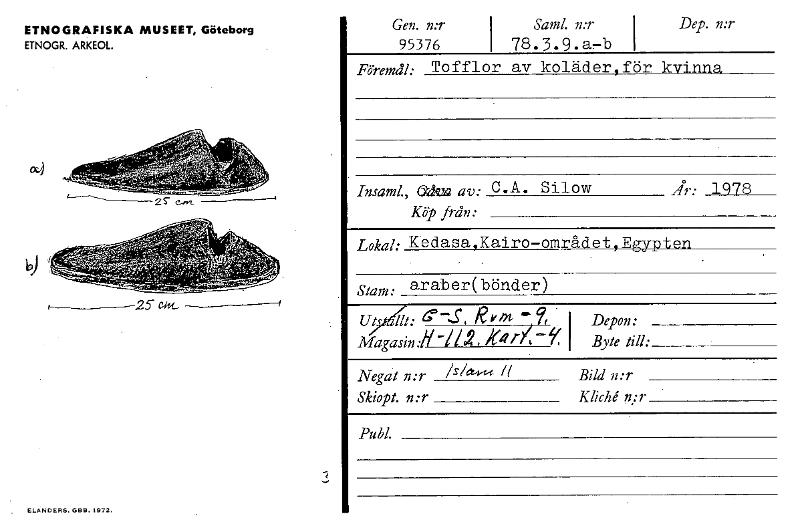 ETNOGRAFISKA MUSEET, Göteborg
ETNOGR. ARKEOL.
a)
25 cm
b)
25 cm
3
ELANDERS. GBB. 1972.
Gen. n:r Saml. n:r Dep. n:r
95376 78.3.9.a-b
Föremål: Tofflor av koläder,för kvinna
Insaml., av: C.A. Silow År: 1978
Köp från:
Lokal: Kedasa,Kairo-området,Egypten
Stam: araber(bönder)
Utställt: G-S. Rvm-9. Depon:
Magasin: H-112. Kart.-4. Byte till:
Negat n:r Islam II Bild n:r
Skiopt. n:r Kliché n:r
Publ.